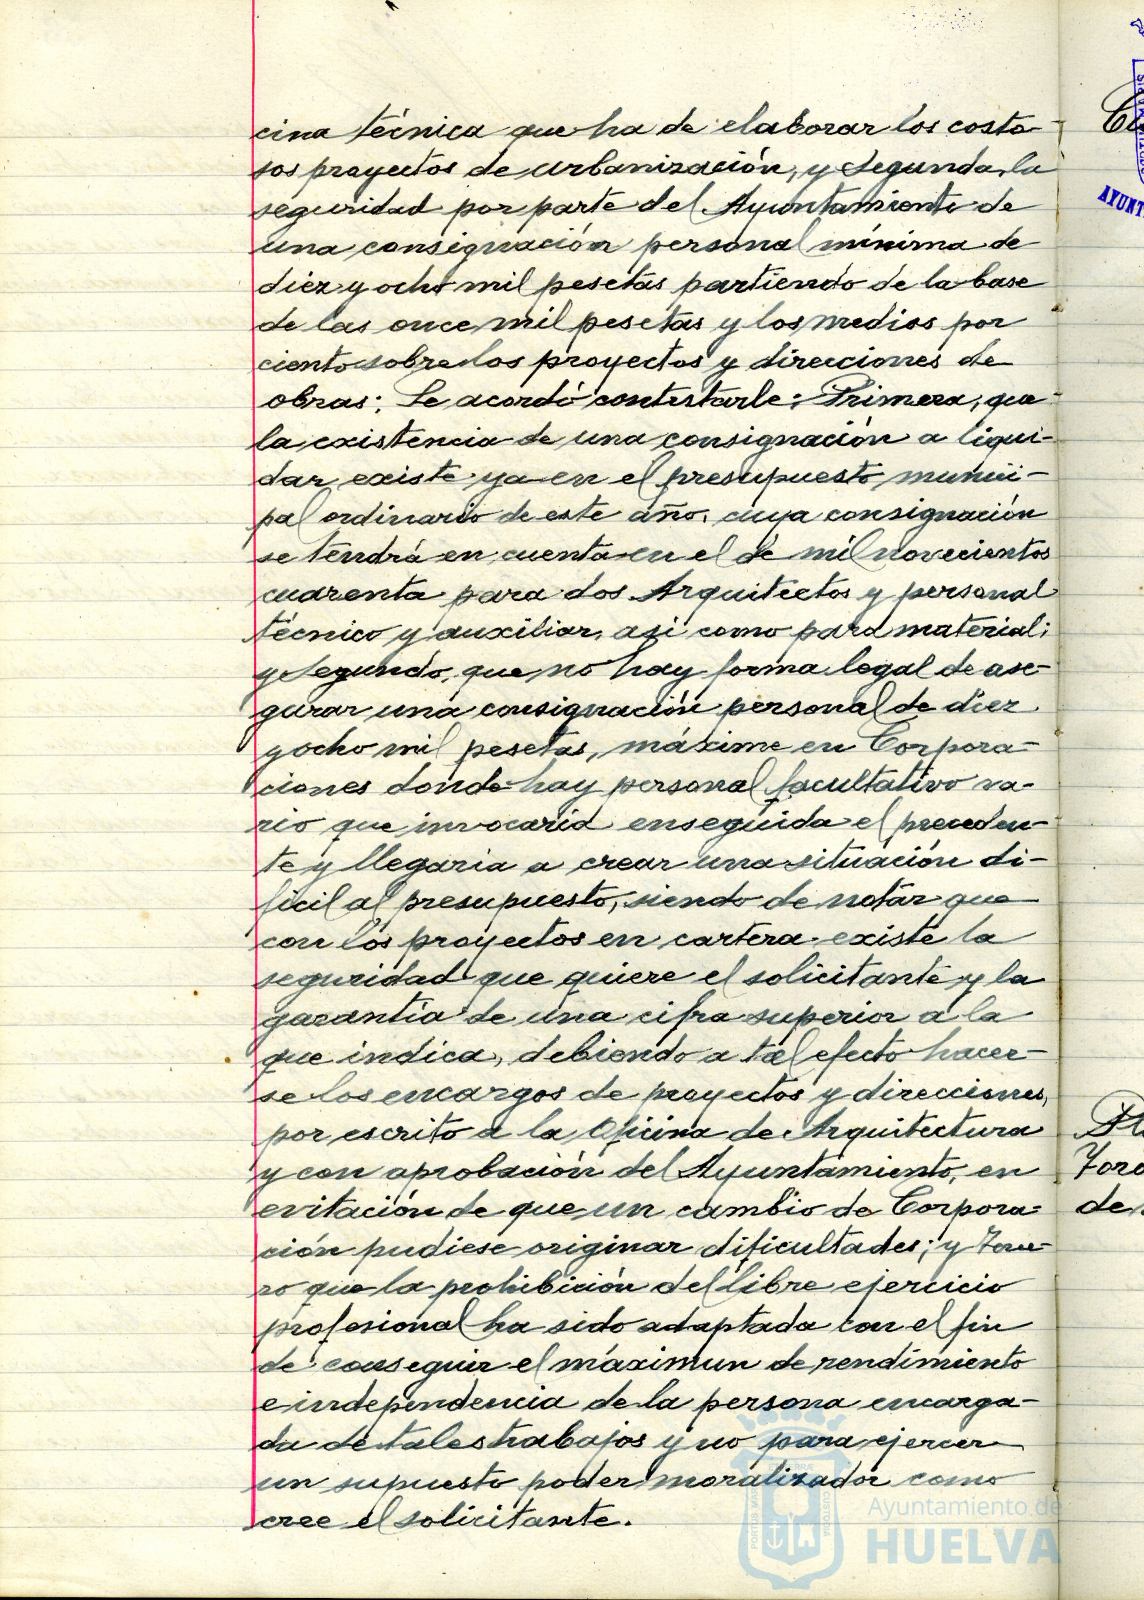 cina técnica que ha de elaborar los costo-
sos proyectos de urbanización, y Segunda, la
seguridad por parte del Ayuntamiento de
una consignación personal mínima de
diez y ocho mil pesetas partiendo de la base
de las once mil pesetas y los medios por
ciento sobre los proyectos y direcciones de
obras: Se acordó contestarle: Primera, que
la existencia de una consignación a liqui-
dar existe ya en el presupuesto munici-
pal ordinario de este año, cuya consignación
se tendrá en cuenta en el de mil novecientos
cuarenta para dos Arquitectos y personal
técnico y auxiliar, asi como para material;
y Segundo, que no hay forma legal de ase-
gurar una consignación personal de diez
y ocho mil pesetas, máxime en Corpora-
ciones donde hay personal facultativo va-
rio que invocaría enseguida el preceden-
te y llegaria a crear una situación di-
ficil al presupuesto, siendo de notar que
con los proyectos en cartera existe la
seguridad que quiere el solicitante y la
garantía de una cifra superior a la
que indica, debiendo a tal efecto hacer-
se los encargos de proyectos y direcciones,
por escrito a la Oficina de Arquitectura
y con aprobación del Ayuntamiento, en
evitación de que un cambio de Corpora-
ción pudiese originar dificultades; y Terce-
ro que la prohibición del libre ejercicio
profesional ha sido adaptada con el fin
de conseguir el máximun de rendimiento
e independencia de la persona encarga-
da de tales trabajos y no para ejercer
un supuesto poder moralizador como
cree el solicitante.
Ayuntamiento de
HUELVA